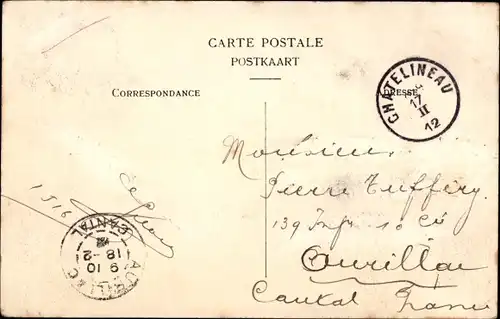 CARTE POSTALE
POSTKAART
CORRESPONDANCE
ADRESSE
CHATELINEAU
17
II
12
Monsieur
Pierre Tuffery
139 Infr 10 Cie
Aurillac
Cantal France
1516
AURILLAC
CANTAL
18-2
9 10